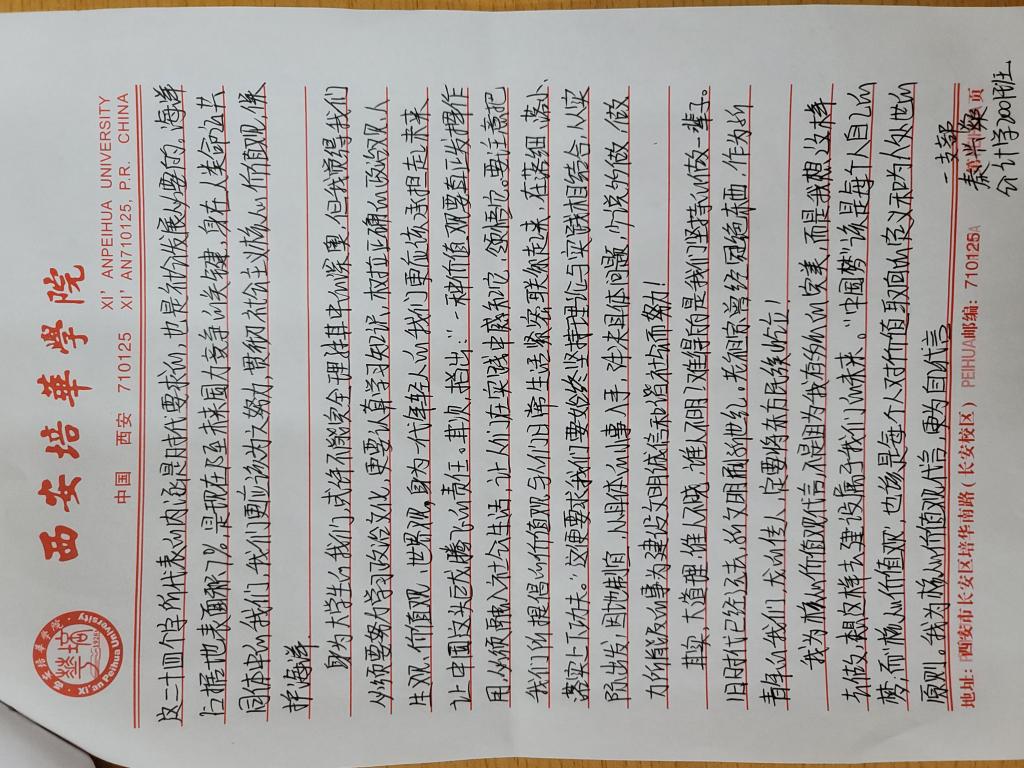 西安培華學院
中国 西安 710125 XI'ANPEIHUA UNIVERSITY
XI'AN710125, P.R. CHINA
西安培華學院
Xi'an Peihua University
这二十四个字所代表的内涵是时代要求的,也是社会发展必要的,海洋
占据地表面积71%,是现在乃至未来国力竞争的关键,身在人类命运共
同体中的我们,我们更应该为之努力,贯彻社会主义核心价值观,保
护海洋.
身为大学生的我们,或许不能完全理解其中的深奥,但我觉得我们
必须要努力学习政治文化,更要认真学习知识,树立正确的政治观、人
生观、价值观、世界观,身为一代年轻人的我们更应该承担起未来
让中国这块远大腾飞的责任。其次,指出:"一种价值观要真正发挥作
用,必须融入社会生活,让人们在实践中感知它、领悟它。要注意把
我们所提倡的价值观与人们日常生活紧密联系起来,在落细、落小、
落实上下功夫。"这便要求我们要始终坚持理论与实践相结合,从实
际出发,因地制宜,从具体的小事入手,解决具体问题,少说多做,做
力所能及的事,为建设文明诚信和谐社会而努力!
其实,大道理谁人不晓,谁人不明,难得的是我们坚持的做一辈子。
旧时代已经过去,的文明雨的他绝。先祖宗曾经冠绝东西,作为新
青年的我们,龙的传人,定要将东方民族屹立!
我为核心价值观代言,不是因为我有多么的完美,而是我想这样
去做,想这样去建设属于我们的未来。"中国梦"该是每个人自己的
梦,而"核心价值观",也该是每个人对价值取向的定义和为人处世的
原则。我为核心价值观代言,更为自己代言
一支部
秦兴焕
会计学2001班
第 页
地址:西安市长安区培华南路(长安校区) PEIHUA邮编:710125A